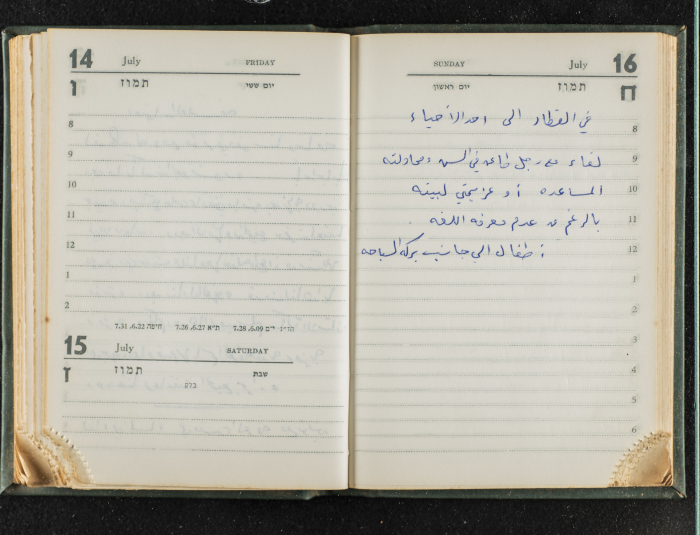 14 July FRIDAY
ו תמוז יום ששי
8
9
10
11
12
1
2
הדה״נ י״ם 7.28 ,6.09 ת״א 7.26 ,6.27 חיפה 7.31 ,6.22
15 July SATURDAY
ז תמוז שבת
בלק
SUNDAY July 16
יום ראשון תמוז ח
في القطار الى احد الاحياء
8
لقاء مع رجل طاعن في السن ومحاولته
9
المساعده أو عزيمتي لبيته
10
بالرغم من عدم معرفة اللغه .
11
أطفال الي جانب بركة السباحه
12
1
2
3
4
5
6